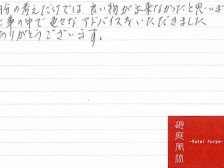 自分の考えだけでは、良い物が出来なかったと思います
仕事の中で色々なアドバイスをいただきました
ありがとうございます。
遊庭風流
-Yutei Furyu-